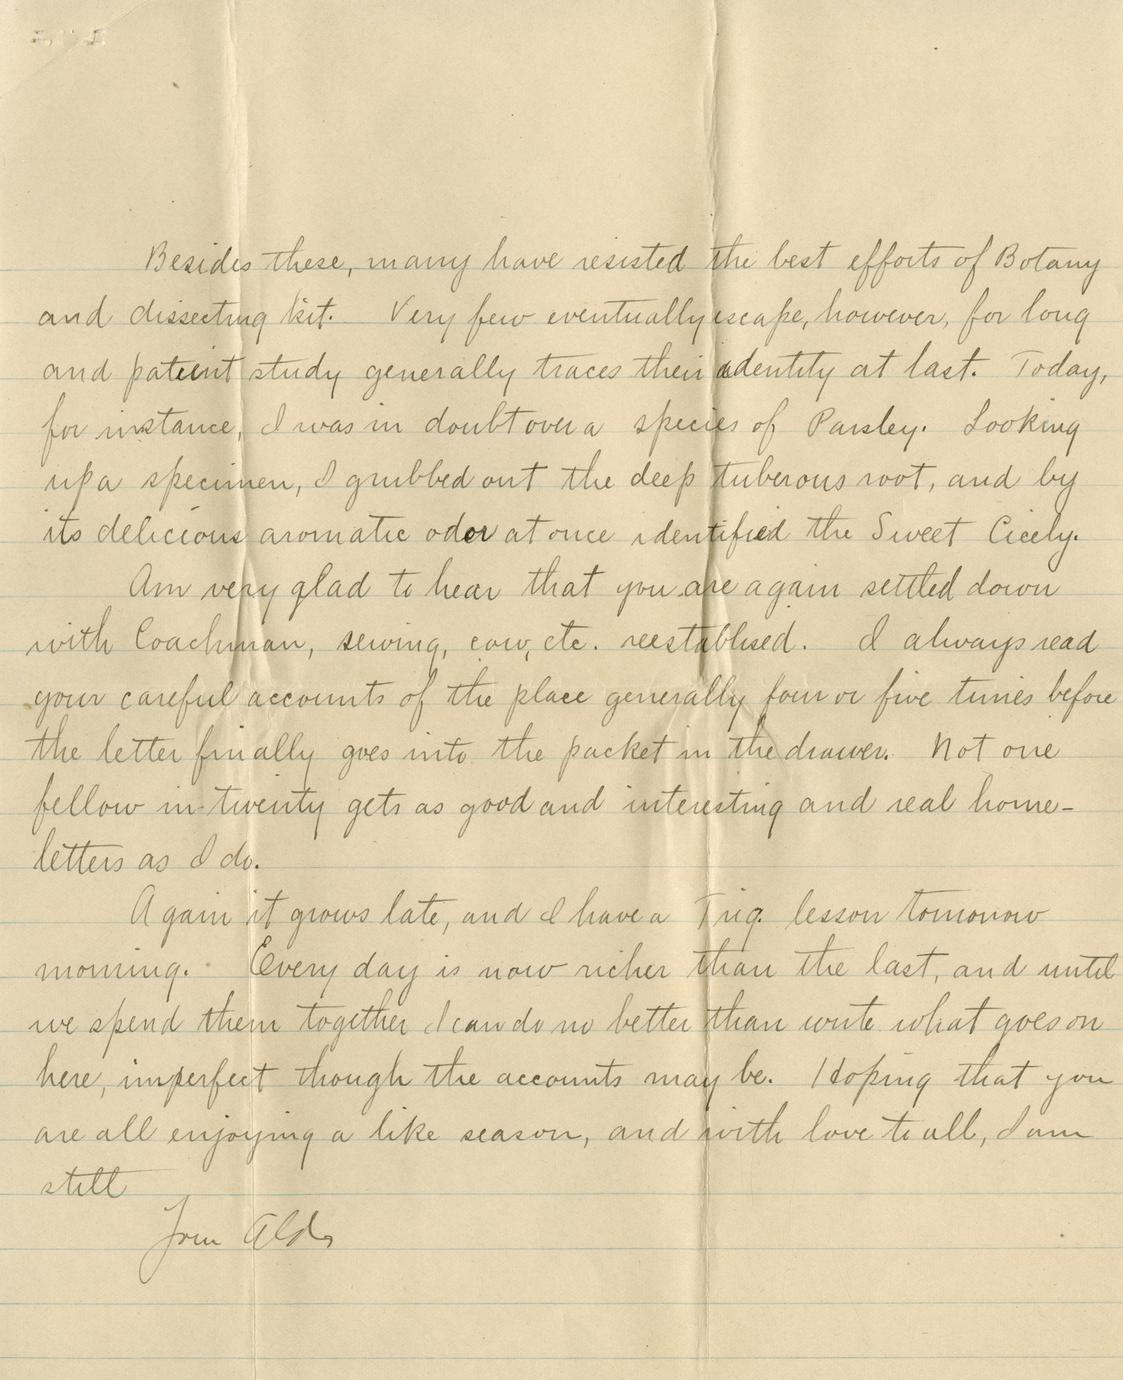 Besides these, many have resisted the best efforts of Botany
and dissecting kit. Very few eventually escape, however, for long
and patient study generally traces their identity at last. Today,
for instance, I was in doubt over a species of Parsley. Looking
up a specimen, I grubbed out the deep tuberous root, and by
its delicious aromatic odor at once identified the Sweet Cicely.
Am very glad to hear that you are again settled down
with Coachman, sewing, cow, etc. reestablised. I always read
your careful accounts of the place generally four or five times before
the letter finally goes into the packet in the drawer. Not one
fellow in twenty gets as good and interesting and real home-
letters as I do.
Again it grows late, and I have a Trig. lesson tomorrow
morning. Every day is now richer than the last, and until
we spend them together I can do no better than write what goes on
here, imperfect though the accounts may be. Hoping that you
are all enjoying a like season, and with love to all, I am
still
Your Aldo